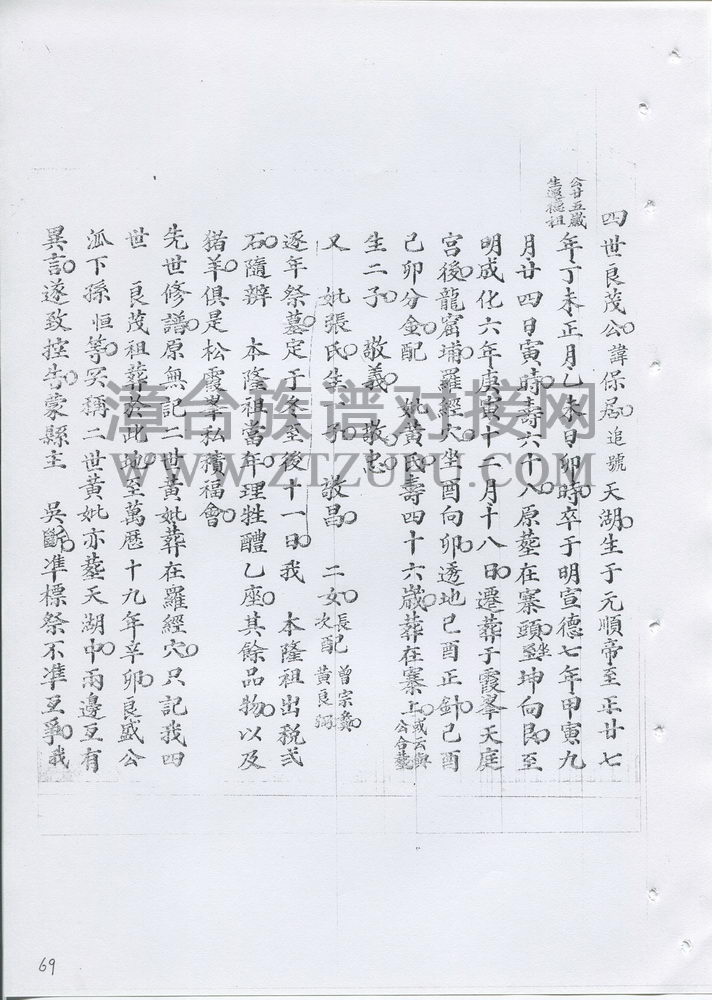 四世良茂公諱保居追號天湖生于元順帝至正廿七
公廿五歲
生邇聰祖
年丁未正月乙未日卯時卒于明宣德七年甲寅九
月廿四日寅時壽六十八原塟在寨頭坐坤向艮至
明成化六年庚寅十二月十八日遷葬于霞峯天庭
宮後龍窟埔羅經穴坐酉向卯透地己酉正針己酉
己卯分金配 妣黃氏壽四十六歲葬在寨上或云與
公合塟
生二子 敬義 敬忠
又 妣張氏生一子 敬昌 二女長配 曾宗彝
次配 黃良弼
逐年祭墓定于冬至後十一日我 本隆祖出稅弍
石隨辨 本隆祖當年理牲醴乙座其餘品物以及
豬羊俱是松霞峯私積福會
先世修譜原無記二世黃妣葬在羅經穴只記我四
世 良茂祖葬於此地至萬曆十九年辛卯良盛公
派下孫恒等冥稱二世黃妣亦塟天湖中兩邊互有
異言遂致控告蒙縣主 吳斷准標祭不准互爭我
漳台族谱对接网
WWW.ZTZUPU.COM
69